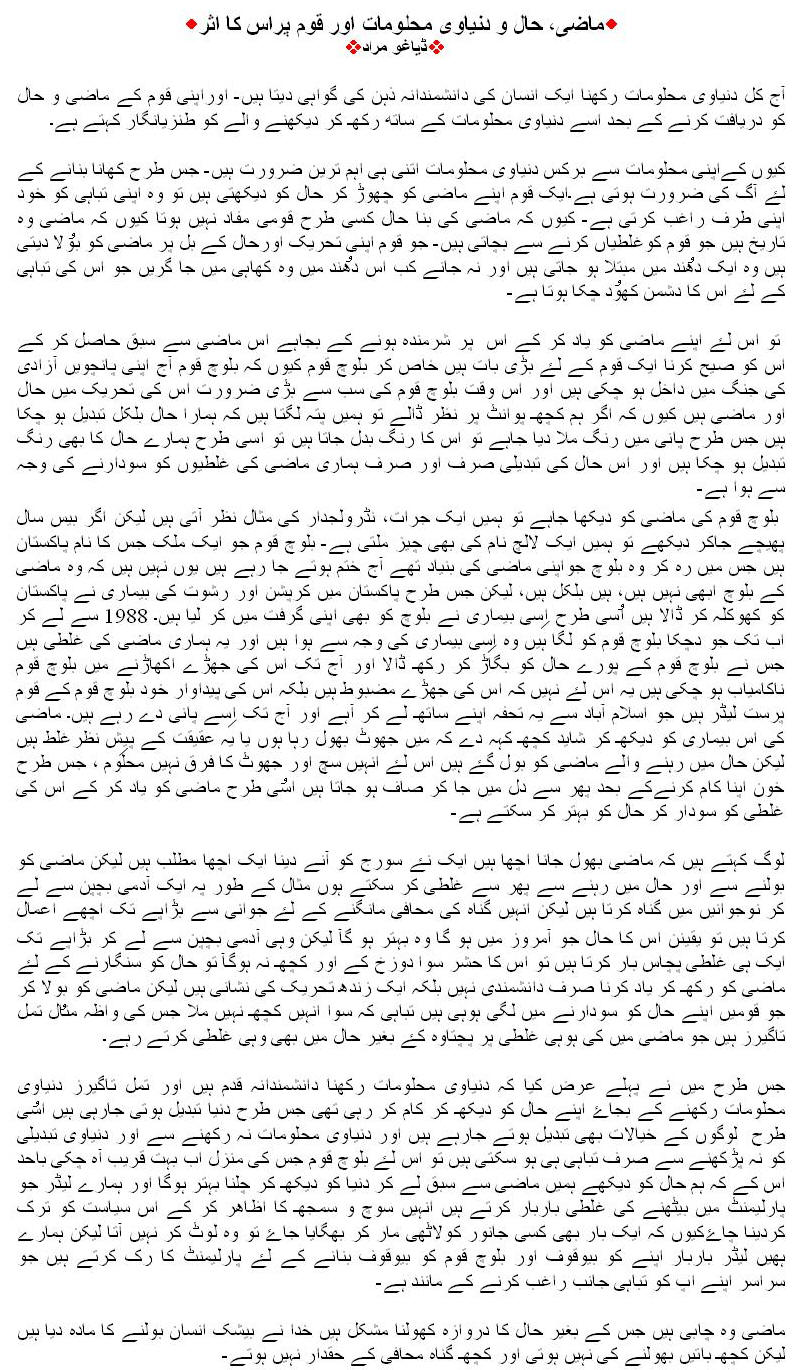 ماضی، حال و دنیاوی محلومات اور قوم پراس کا اثر
ڈیاغو مراد
آج کل دنیاوی محلومات رکھنا ایک انسان کی دانشمندانہ ذہن کی گواہی دیتا ہیں- اوراپنی قوم کے ماضی و حال
کو دریافت کرنے کے بحد اسے دنیاوی محلومات کے ساتھ رکھہ کر دیکھنے والے کو طنزیانگار کہتے ہے۔
کیوں کےاپنی محلومات سے برکس دنیاوی محلومات اتنی ہی اہم ترین ضرورت ہیں- جس طرح کھانا بنانے کے
لۓ آگ کی ضرورت ہوتی ہے۔ایک قوم اپنے ماضی کو چھوڑ کر حال کو دیکھتی ہیں تو وہ اپنی تباہی کو خود
اپنی طرف راغب کرتی ہے- کیوں کہ ماضی کی بنا حال کسی طرح قومی مفاد نہیں ہوتا کیوں کہ ماضی وہ
تاریخ ہیں جو قوم کوغلطیاں کرنے سے بچاتی ہیں- جو قوم اپنی تحریک اورحال کے بل پر ماضی کو بؤلا دیتی
ہیں وہ ایک دھُند میں مبتلا ہو جاتی ہیں اور نہ جانے کب اس دھُند میں وہ کھاہی میں جا گریں جو اس کی تباہی
کے لۓ اس کا دشمن کھوُد چکا ہوتا ہے-
تو اس لۓ اپنے ماضی کو یاد کر کے اس پر شرمندہ ہونے کے بجاہے اس ماضی سے سبق حاصل کر کے
اس کو صیح کرنا ایک قوم کے لۓ بڑی بات ہیں خاص کر بلوچ قوم کیوں کہ بلوچ قوم آج اپنی پانچویں آزادی
کی جنگ میں داخل ہو چکی ہیں اور اس وقت بلوچ قوم کی سب سے بڑی ضرورت اس کی تحریک میں حال
اور ماضی ہیں کیوں کہ اگر ہم کچھہ پوانٹ پر نظر ڈالے تو ہمیں پتہ لگتا ہیں کہ ہمارا حال بلکل تبدیل ہو چکا
ہیں جس طرح پانی میں رنگ ملا دیا جاہے تو اس کا رنگ بدل جاتا ہیں تو اسی طرح ہمارے حال کا بھی رنگ
تبدیل ہو چکا ہیں اور اس حال کی تبدیلی صرف اور صرف ہماری ماضی کی غلطیوں کو سودارنے کی وجہ
سے ہوا ہے-
بلوچ قوم کی ماضی کو دیکھا جاہے تو ہمیں ایک جرات، نڈرولجدار کی مثال نظر آتی ہیں لیکن اگر بیس سال
پھیچے جاکر دیکھے تو ہمیں ایک لالچ نام کی بھی چیز ملتی ہے- بلوچ قوم جو ایک ملک جس کا نام پاکستان
ہیں جس میں رہ کر وہ بلوچ جواپنی ماضی کی بنیاد تھے آج ختم ہوتے جا رہے ہیں یوں نہیں ہیں کہ وہ ماضی
کے بلوچ ابھی نہیں ہیں، ہیں بلکل ہیں، لیکن جس طرح پاکستان میں کرپشن اور رشوت کی بیماری نے پاکستان
کو کھوکلہ کر ڈالا ہیں اُسی طرح اِسی بیماری نے بلوچ کو بھی اپنی گرفت میں کر لیا ہیں۔ 1988 سے لے کر
اب تک جو دچکا بلوچ قوم کو لگا ہیں وہ اِسی بیماری کی وجہ سے ہوا ہیں اور یہ ہماری ماضی کی غلطی ہیں
جس نے بلوچ قوم کے پورے حال کو بگاڑ کر رکھہ ڈالا اور آج تک اس کی جھڑے اکھاڑنے میں بلوچ قوم
ناکامیاب ہو چکی ہیں یہ اس لۓ نہیں کہ اس کی جھڑے مضبوط ہیں بلکہ اس کی پیداوار خود بلوچ قوم کے قوم
پرست لیڈر ہیں جو اسلام آباد سے یہ تحفہ اپنے ساتھہ لے کر آہے اور آج تک اِسے پانی دے رہے ہیں۔ ماضی
کی اس بیماری کو دیکھہ کر شاید کچھہ کہہ دے کہ میں جھوٹ بھول رہا ہوں یا یہ عقیقت کے پیش نظر غلط ہیں
لیکن حال میں رہنے والے ماضی کو بول گۓ ہیں اس لۓ انہیں سچ اور جھوٹ کا فرق نہیں محلوُم ، جس طرح
خون اپنا کام کرنےکے بحد پھر سے دل میں جا کر صاف ہو جاتا ہیں اسُی طرح ماضی کو یاد کر کے اس کی
غلطی کو سودار کر حال کو بہتر کر سکتے ہے-
لوگ کہتے ہیں کہ ماضی بھول جانا اچھا ہیں ایک نۓ سورج کو آنے دینا ایک اچھا مطلب ہیں لیکن ماضی کو
بولنے سے اور حال میں رہنے سے پھر سے غلطی کر سکتے ہوں مثال کے طور پہ ایک آدمی بچپن سے لے
کر نوجوانیں میں گناہ کرتا ہیں لیکن انہیں گناہ کی محافی مانگنے کے لۓ جوانی سے بڑاپے تک اچھے اعمال
کرتا ہیں تو یقینن اس کا حال جو آمروز میں ہو گا وہ بہتر ہو گآ لیکن وہی آدمی بچپن سے لے کر بڑاپے تک
ایک ہی غلطی پچاس بار کرتا ہیں تو اس کا حشر سوا دوزخ کے اور کچھہ نہ ہوگآ تو حال کو سنگارنے کے لۓ
ماضی کو رکھہ کر یاد کرنا صرف دانشمندی نہیں بلکہ ایک زندھ تحریک کی نشانی ہیں لیکن ماضی کو بولا کر
جو قومیں اپنے حال کو سودارنے میں لگی ہوہی ہیں تباہی کہ سوا انہیں کچھہ نہیں ملا جس کی واظہ مثال تمل
تاگیرز ہیں جو ماضی میں کی ہوہی غلطی پر پچتاوہ کۓ بغیر حال میں بھی وہی غلطی کرتے رہے۔
جس طرح میں نے پہلے عرض کیا کہ دنیاوی محلومات رکھنا دانشمندانہ قدم ہیں اور تمل تاگیرز دنیاوی
محلومات رکھنے کے بجاۓ اپنے حال کو دیکھہ کر کام کر رہی تھی جس طرح دنیا تبدیل ہوتی جارہی ہیں اسُی
طرح لوگوں کے خیالات بھی تبدیل ہوتے جارہے ہیں اور دنیاوی محلومات نہ رکھنے سے اور دنیاوی تبدیلی
کو نہ پڑکھنے سے صرف تباہی ہی ہو سکتی ہیں تو اس لۓ بلوچ قوم جس کی منزل اب بہت قریب آہ چکی باحد
اس کے کہ ہم حال کو دیکھے ہمیں ماضی سے سبق لے کر دنیا کو دیکھہ کر چلنا بہتر ہوگا اور ہمارے لیڈر جو
پارلیمنٹ میں بیٹھنے کی غلطی باربار کرتے ہیں انہیں سوچ و سمجھہ کا اظاھر کر کے اس سیاست کو ترک
کردینا چاۓکیوں کہ ایک بار بھی کسی جانور کولاٹھی مار کر بھگایا جاۓ تو وہ لوٹ کر نہیں آتا لیکن ہمارے
بھیں لیڈر باربار اپنے کو بیوقوف اور بلوچ قوم کو بیوقوف بنانے کے لۓ پارلیمنٹ کا رک کرتے ہیں جو
سراسر اپنے اپ کو تباہی جانب راغب کرنے کے مانند ہے-
ماضی وہ چابی ہیں جس کے بغیر حال کا دروازہ کھولنا مشکل ہیں خدا نے بیشک انسان بولنے کا مادہ دیا ہیں
لیکن کچھہ باتیں بھولنے کی نہیں ہوتی اور کچھہ گناہ محافی کے حقدار نہیں ہوتے-